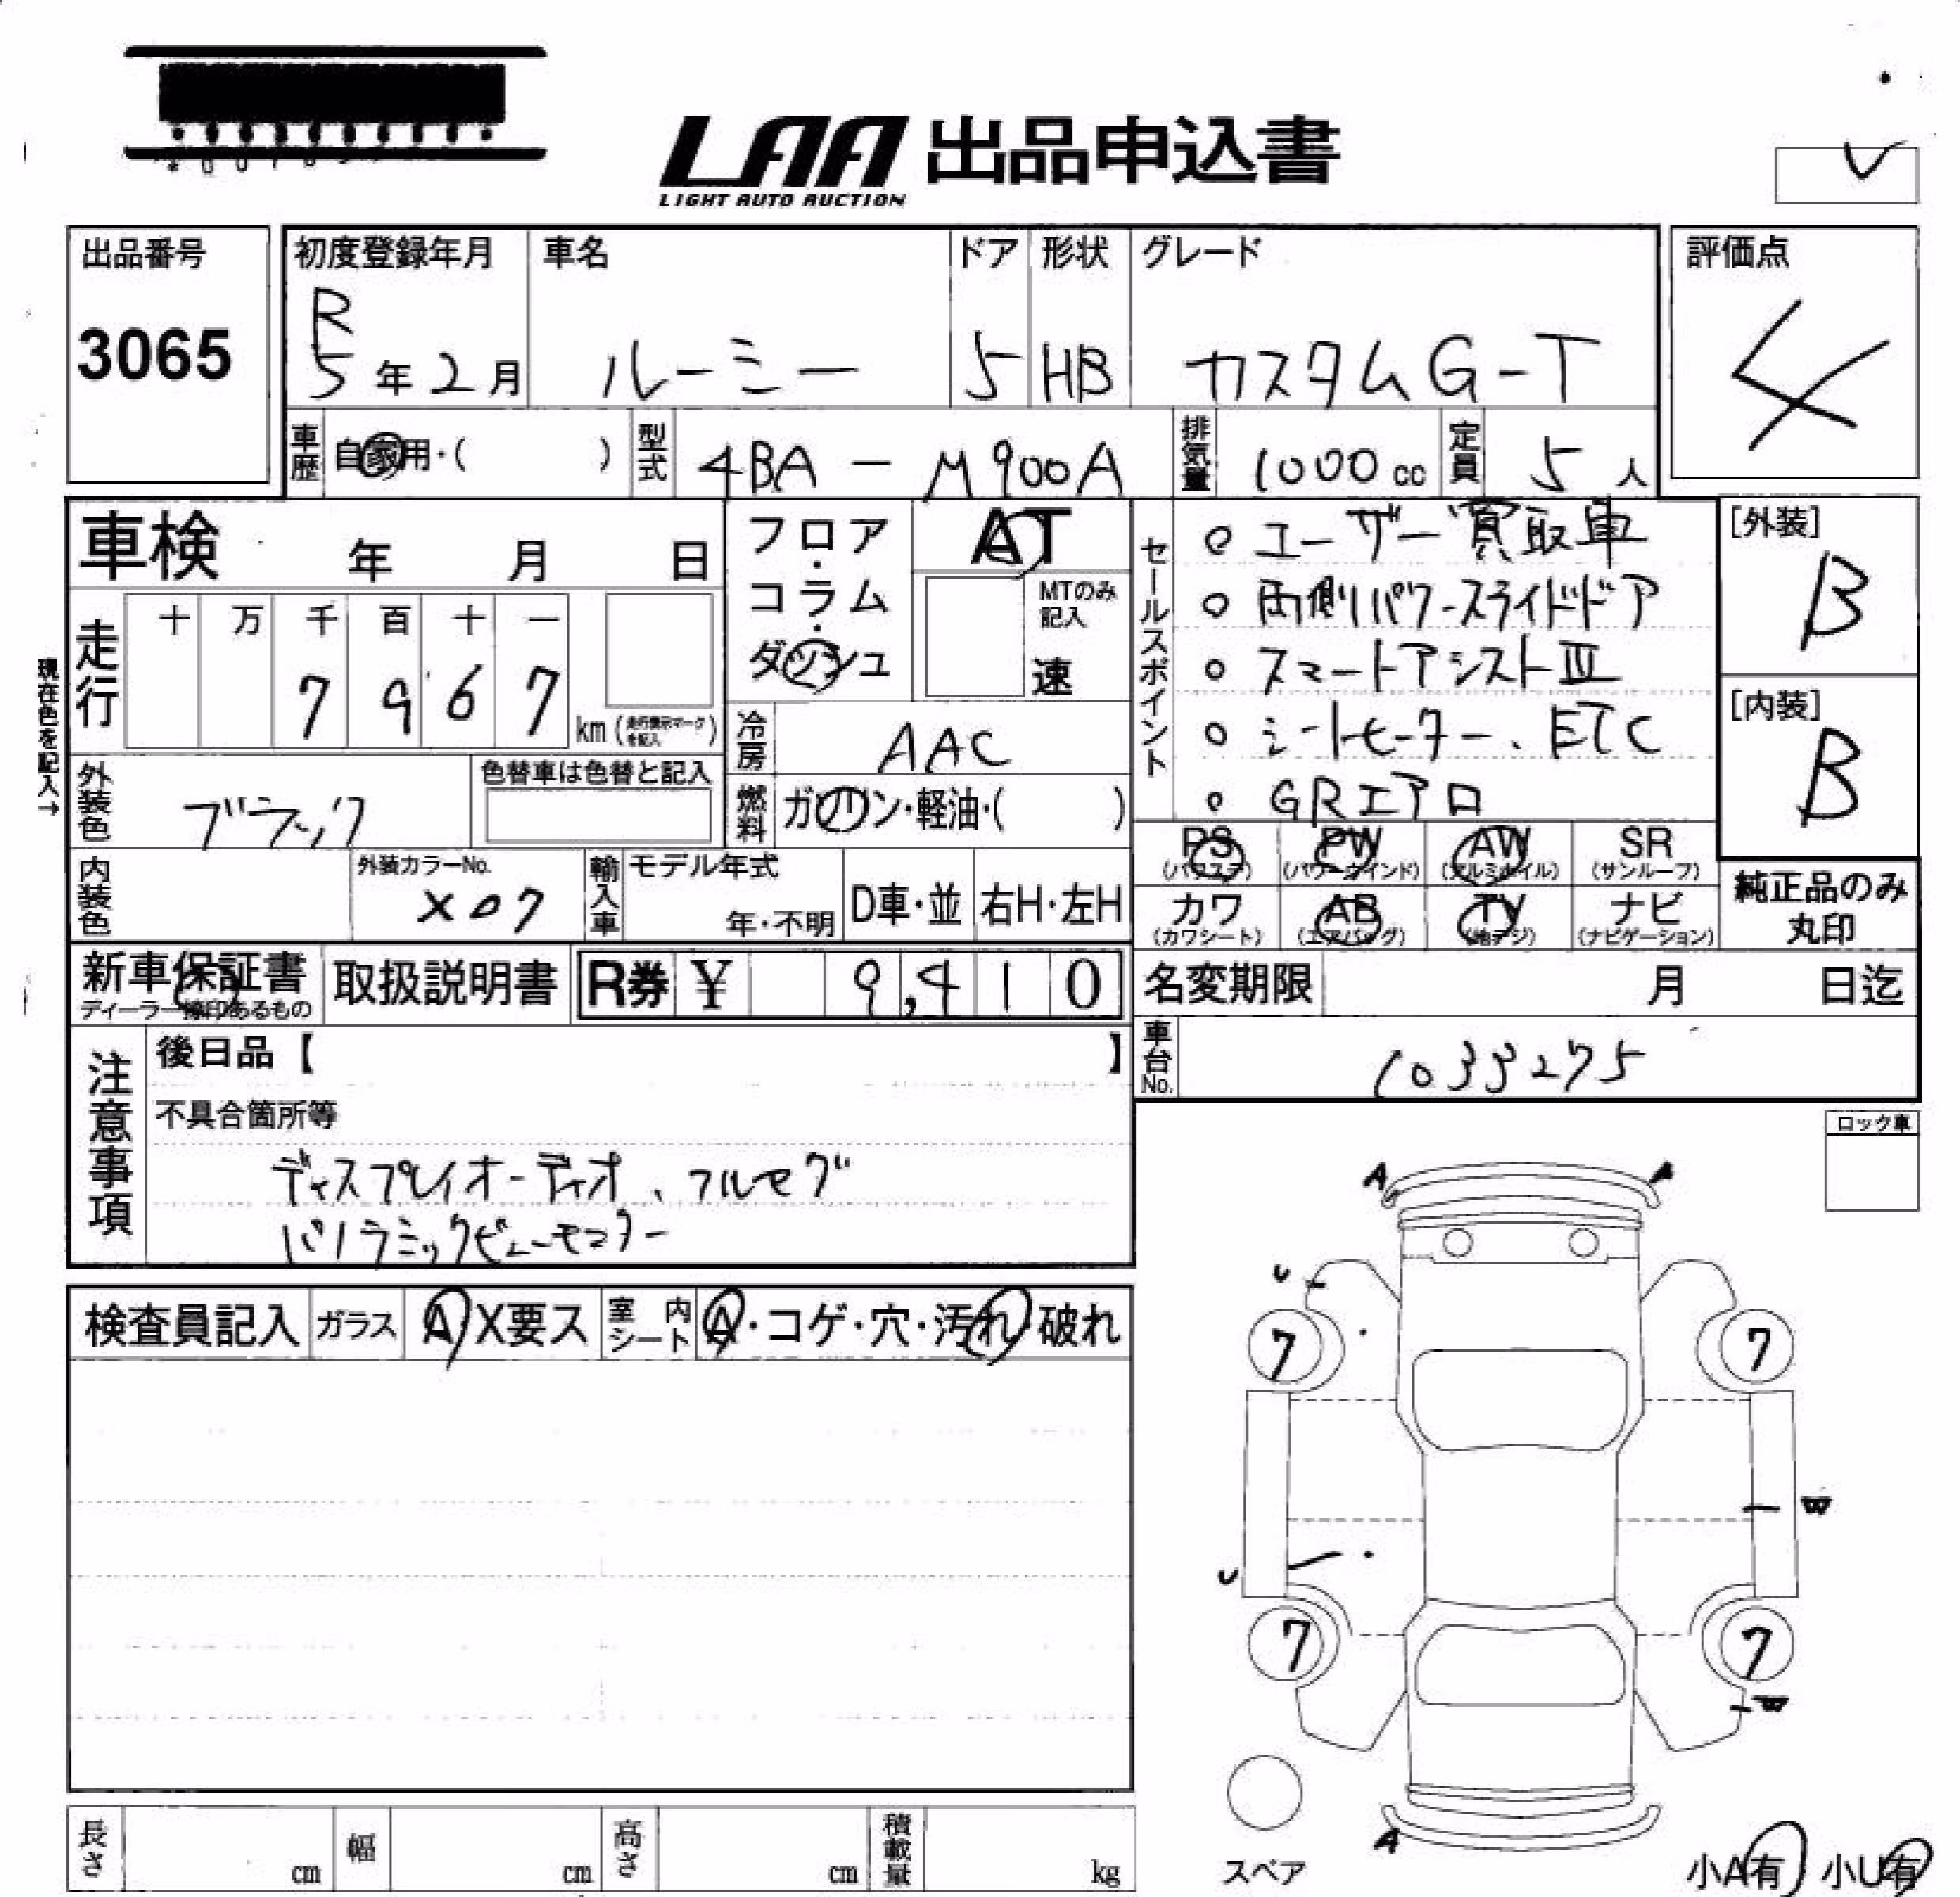 LAA 出品申込書
LIGHT AUTO AUCTION
出品番号
3065
初度登録年月
R
5年2月
車名
ルーミー
ドア
5
形状
HB
グレード
カスタムG-T
評価点
4
車歴
自家用・( )
型式
4BA - M900A
排気量
1000cc
定員
5人
車検 年 月 日
現在色を記入→
走行
十 万 千 百 十 一
7 9 6 7
km(走行表示マークを記入)
フロア・コラム・ダッシュ
AT
MTのみ記入
速
冷房
AAC
外装色
ブラック
色替車は色替と記入
燃料
ガソリン・軽油・( )
内装色
外装カラーNo.
X07
輸入車
モデル年式
年・不明
D車・並
右H・左H
新車保証書
ディーラー捺印あるもの
取扱説明書
R券 ¥ 9,410
セールスポイント
○ ユーザー買取車
○ 両側パワースライドドア
○ スマートアシストⅢ
○ シートヒーター、ETC
○ GRエアロ
[外装]
B
[内装]
B
PS
(パワステ)
PW
(パワーウインド)
AW
(アルミホイル)
SR
(サンルーフ)
カワ
(カワシート)
AB
(エアバッグ)
TV
(地デジ)
ナビ
(ナビゲーション)
純正品のみ
丸印
名変期限 月 日迄
車台No.
1033275
注意事項
後日品【 】
不具合箇所等
ディスプレイオーディオ、フルセグ
パノラミックビューモニター
ロック車
検査員記入
ガラス
A・X要ス
室内シート
A・コゲ・穴・汚れ・破れ
A A
U
7 7
U
7 7
A
スペア
小A有 小U有
長さ cm
幅 cm
高さ cm
積載量 kg